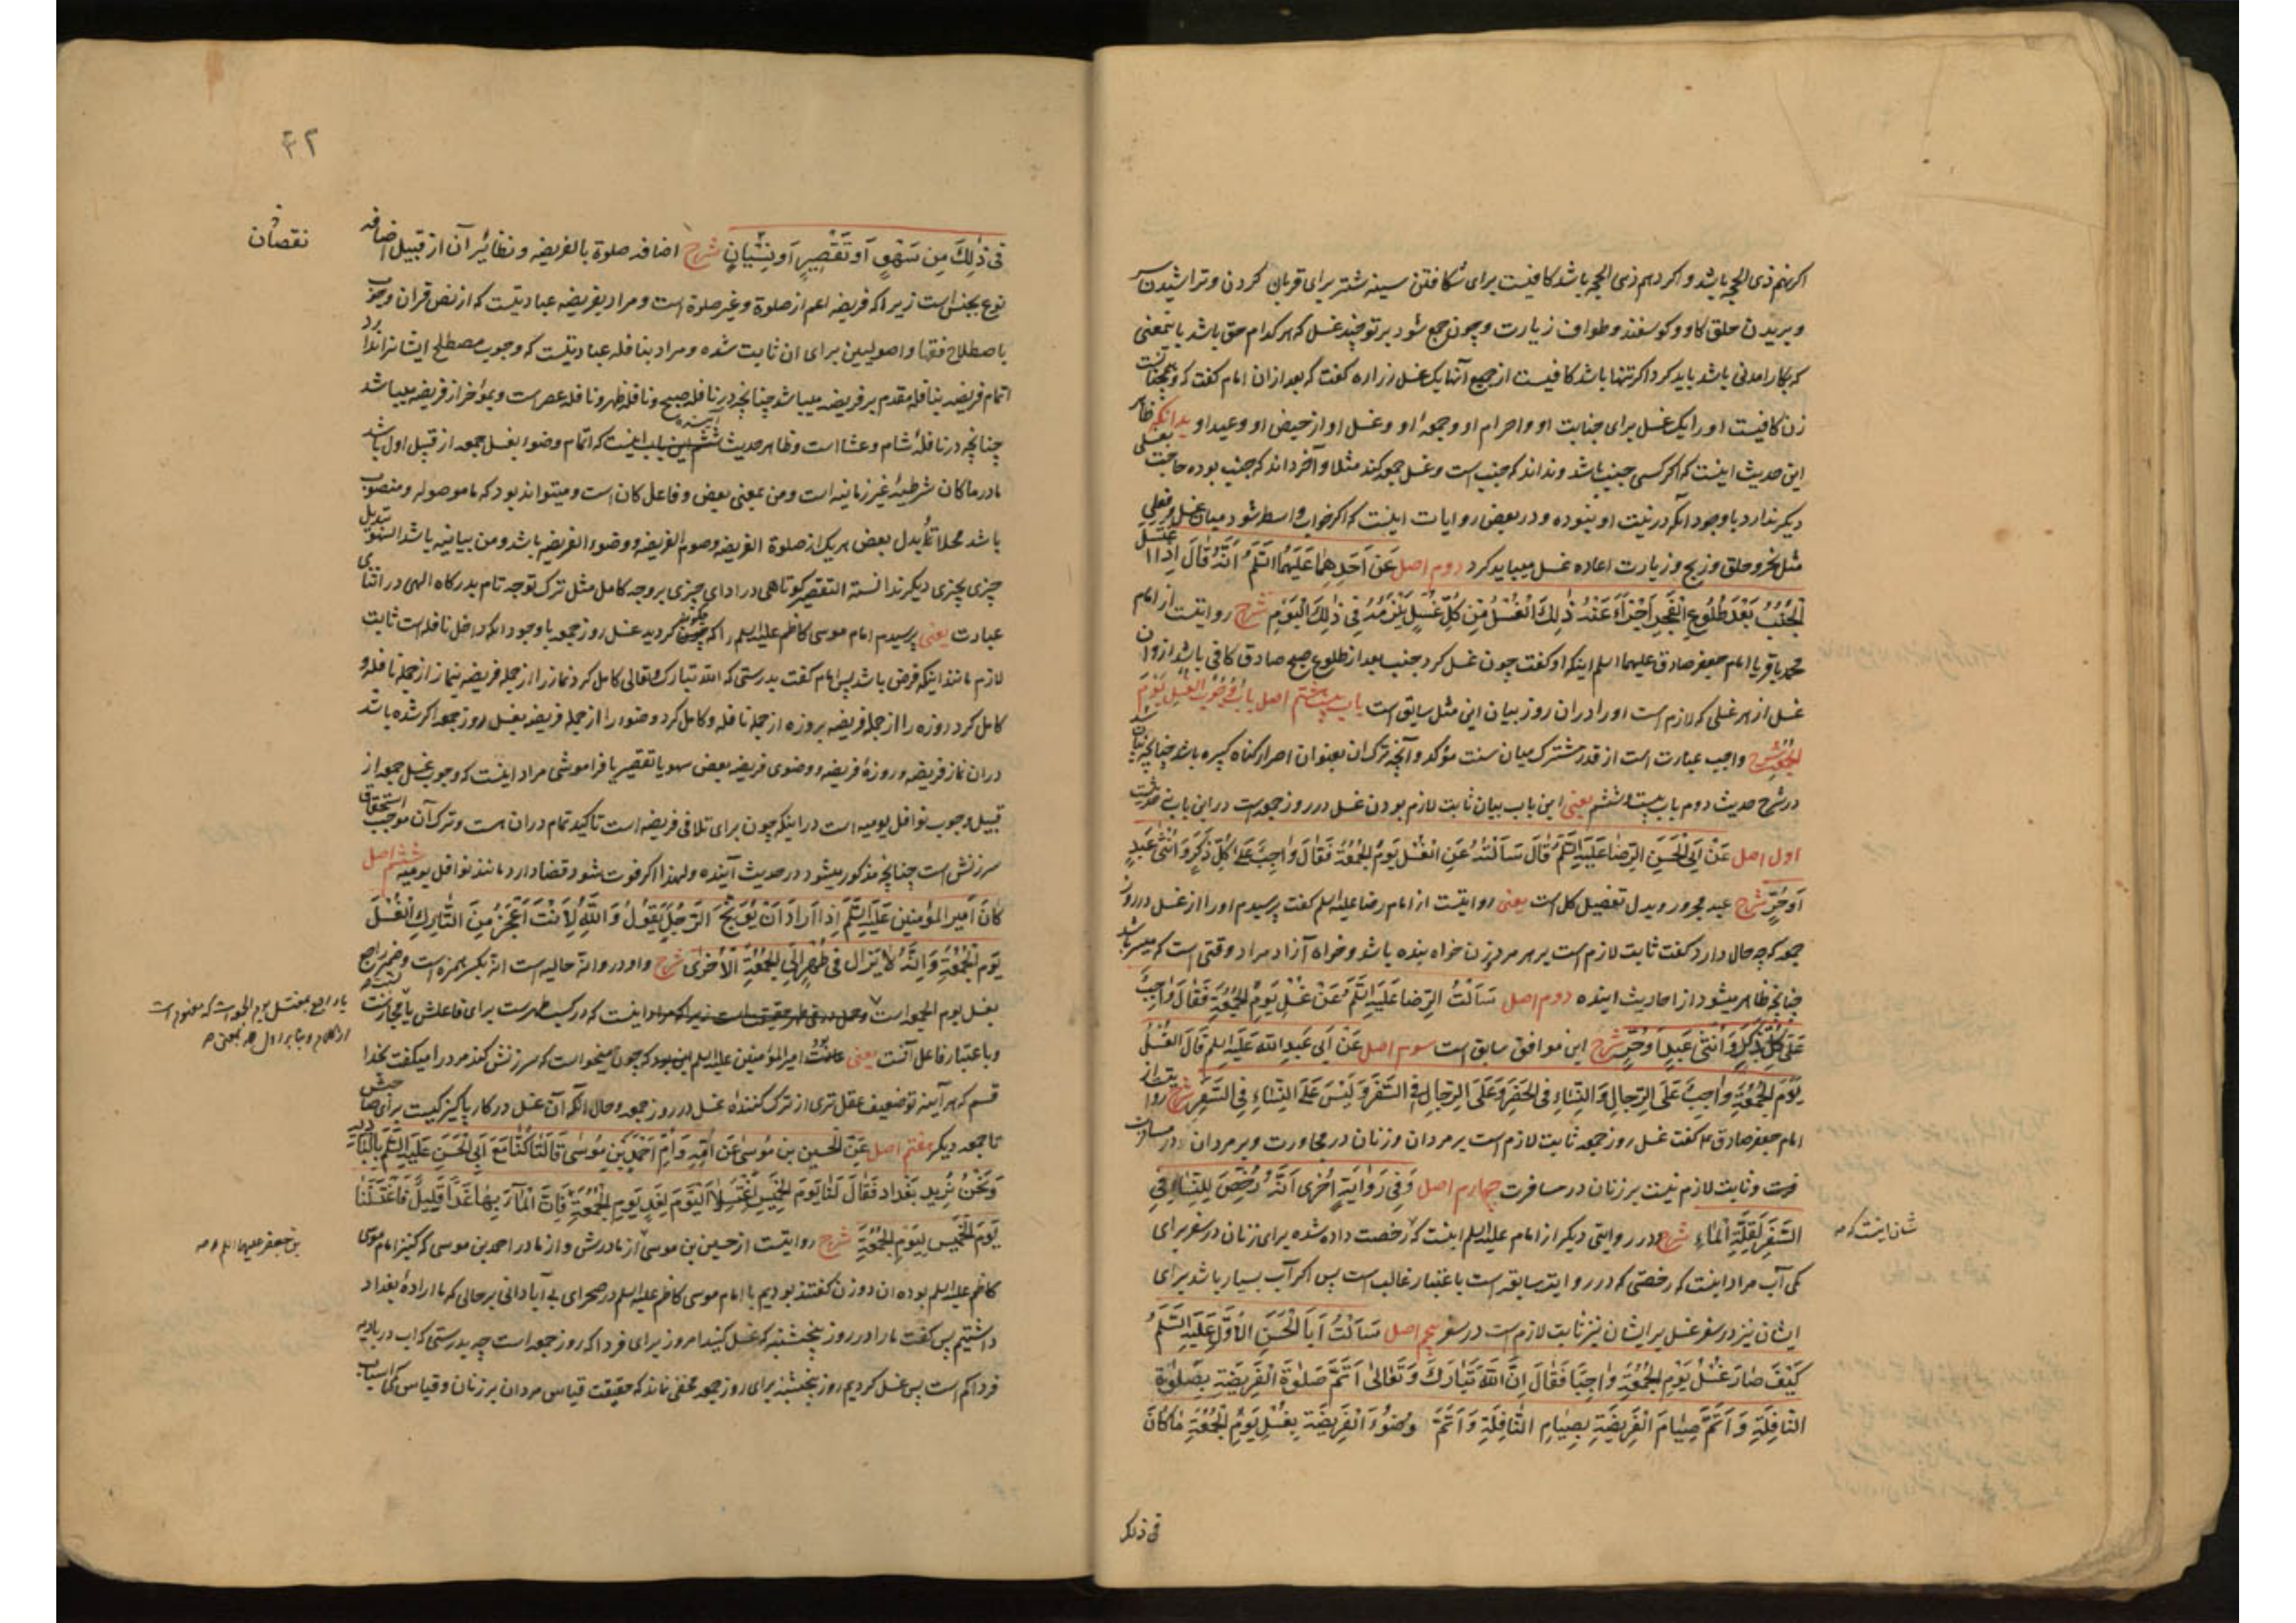 اکر نهم ذی الحجه باشد و اکر دهم ذی الحجه باشد کافیست برای شکافتن سینه شتر برای قربان کردن و تراشیدن سر
و بریدن حلق کاو و کوسفند و طواف زیارت و چون جمع شود بر تو چند غسل که هر کدام حق باشد باینمعنی
که بکار امدنی باشد باید کرد اکر تنها باشد کافیست از جمیع آنها یک غسل زراره کفت که بعد ازان امام کفت که و همچنانست
زن کافیست او را یک غسل برای جنابت او و احرام او و جمعهٔ او و غسل او از حیض او و عید او بدانکه ظاهر
این حدیث اینست که اکر کسی جنب باشد و نداند که جنب است و غسل جمعه کند مثلا و آخر داند که جنب بوده حاجت بغسلی
دیکر ندارد با وجود انکه در نیت او نبوده و در بعض روایات اینست که اکر خواب واسطه شود میان غسل و فعلی
مثل نحر و حلق و ذبح و زیارت اعاده غسل میباید کرد دوم اصل عَن اَحَدِهِمٰا عَلَیهِمَا السَّلَمُ اَنَّهُ قٰالَ اِذَا اغتَسَلَ
الجُنُبُ بَعْدَ طُلُوعِ الفَجرِ اَجْزَاَ عَنْهُ ذٰلِكَ الْغُسْلُ مِن كُلِّ غُسْلٍ يَلْزَمُهُ فِي ذٰلِكَ الْيَوْمِ شرح روایتست از امام
محمد باقر یا امام جعفر صادق علیهما السلم اینکه او کفت چون غسل کرد جنب بعد از طلوع صبح صادق کافی باشد ازو ان
غسل از هر غسلی که لازم است او را دران روز بیان این مثل سابق است باب بیست هشتم اصل بٰابُ وُجُوبِ الْغُسْلِ یَوْمَ
الجُمُعَةِ شرح واجب عبارت است از قدر مشترک میان سنت مؤکد و آنچه ترک ان بعنوان اصرار کناه کبیره باشد چنانچه بیان شد
در شرح حدیث دوم باب بیست و ششم یعنی این باب بیان ثابت لازم بودن غسل در روز جمعه است در این باب حدیث
اول اصل عَنْ اَبِی الْحَسَنِ الرِّضٰا عَلَیهِ السَّلَمُ قٰالَ سَأَلْتُهُ عَنِ الْغُسْلِ یَوْمَ الجُمُعَةِ فَقٰالَ وٰاجِبٌ عَلیٰ کُلِّ ذَکَرٍ وَ اُنْثیٰ عَبْدٍ
اَوْ حُرٍّ شرح عبد مجرور و بدل تفصیل کل است یعنی روایتست از امام رضا علیه السلم کفت پرسیدم او را از غسل در روز
جمعه که چه حال دارد کفت ثابت لازم است بر هر مرد و زن خواه بنده باشد و خواه آزاد مراد وقتی است که میسر باشد
چنانچه ظاهر میشود از احادیث اینده دوم اصل سَأَلْتُ الرِّضٰا عَلَیهِ السَّلَمُ عَنْ غُسْلِ یَوْمِ الجُمُعَةِ فَقٰالَ وٰاجِبٌ
عَلیٰ کُلِّ ذَکَرٍ وَ اُنْثیٰ عَبدٍ اَوْ حُرٍّ شرح این موافق سابق است سوم اصل عَنْ اَبِی عَبدِ اللّٰهِ عَلَیهِ السلم قٰالَ الغُسْلُ
یَوْمَ الجُمُعَةِ وٰاجِبٌ عَلَی الرِّجٰالِ وَ النِّسٰاءِ فِی الحَضَرِ وَ عَلَی الرِّجٰالِ فِی السَّفَرِ وَ لَیْسَ عَلَی النِّسٰاءِ فِی السَّفَرِ شرح روایتست از
امام جعفر صادق ع کفت غسل روز جمعه ثابت لازم است بر مردان و زنان در مجاورت و بر مردان در مسافرت
و ثابت لازم نیست بر زنان در مسافرت چهارم اصل وَ فِی رِوٰایَةٍ اُخْرٰی اَنَّهُ رُخِّصَ لِلنِّسٰاءِ فِی
السَّفَرِ لِقِلَّةِ الْمٰاءِ شرح و در روایتی دیکر از امام علیه السلم اینست که رخصت داده شده برای زنان در سفر برای
کمی آب مراد اینست که رخصتی که در روایت سابقه است باعتبار غالب است پس اکر آب بسیار باشد برای
ایشان نیز در سفر غسل بر ایشان نیز ثابت لازم است در سفر پنجم اصل سَأَلْتُ اَبَا الْحَسَنِ الْاَوَّلَ عَلَیهِ السَّلَمُ
کَیْفَ صٰارَ غُسْلُ یَوْمِ الجُمُعَةِ وٰاجِبًا فَقٰالَ اِنَّ اللّٰهَ تَبٰارَكَ وَ تَعٰالیٰ اَتَمَّ صَلوٰةَ الْفَرِیضَةِ بِصَلوٰةِ
النّٰافِلَةِ وَ اَتَمَّ صِیٰامَ الْفَرِیضَةِ بِصِیٰامِ النّٰافِلَةِ وَ اَتَمَّ وُضُوْءَ الْفَرِیضَةِ بِغُسْلِ یَوْمِ الْجُمُعَةِ مٰا کٰانَ
شان اینست که
فی ذلک
۴۲
نقصان
فِی ذٰلِكَ مِن سَهْوٍ اَو تَقْصِیرٍ اَو نِسْیٰانٍ شرح اضافه صلوة بالفریضه و نظائر آن از قبیل اضافه
نوع بجنس است زیرا که فریضه اعم از صلوة و غیر صلوة است و مراد بفریضه عبادیتست که از نص قران وجوب
باصطلاح فقها و اصولیین برای ان ثابت شده و مراد بنافله عبادیتست که وجوب مصطلح ایشان ندارد
اتمام فریضه بنافله مقدم بر فریضه میباشد چنانچه در نافله صبح و نافله ظهر و نافله عصر است و بمؤخر از فریضه میباشد
چنانچه در نافلهٔ شام و عشا است و ظاهر حدیث آینده اینست که اتمام وضوء بغسل جمعه از قبیل اول باشد
ما در ما کان شرطیهٔ غیر زمانیه است و من بمعنی بعض و فاعل کان است و میتواند بود که ما موصوله و منصوب
باشد محلا تا بدل بعض هر یک از صلوة الفریضه و صوم الفریضه و وضوء الفریضه باشد و من بیانیه باشد السهو تبدیل
چیزی بچیزی دیکر ندانسته التقصیر کوتاهی در ادای چیزی بر وجه کامل مثل ترک توجه تام بدرکاه الهی در اثنای
عبادت یعنی پرسیدم امام موسی کاظم علیه السلم را که چکونه کردید غسل روز جمعه با وجود انکه داخل نافله است ثابت
لازم مانند اینکه فرض باشد پس امام کفت بدرستی که الله تبارک و تعالی کامل کرد نماز را از جمله فریضه بنماز از جمله نافله و
کامل کرد روزه را از جمله فریضه بروزه از جمله نافله و کامل کرد وضوء را از جمله فریضه بغسل روز جمعه اکر شده باشد
دران نماز فریضه و روزهٔ فریضه و وضوی فریضه بعض سهو یا تقصیر یا فراموشی مراد اینست که وجوب غسل جمعه از
قبیل وجوب نوافل یومیه است در اینکه چون برای تلافی فریضه است تاکید تمام دران هست و ترک آن موجب استحقاق
سرزنش است چنانچه مذکور میشود در حدیث آینده و لهذا اکر فوت شود قضا دارد مانند نوافل یومیه ششم اصل
کٰانَ اَمیرُ المؤمنین عَلَیهِ السَّلَمُ اِذٰا اَرٰادَ اَنْ یُوَبِّخَ الرَّجُلَ یَقُولُ وَ اللّٰهِ لَاَنْتَ اَعْجَزُ مِنَ التّٰارِكِ الْغُسْلَ
یَوْمَ الْجُمُعَةِ وَ اِنَّهُ لٰا یَزٰالُ فِی طُهْرٍ اِلَی الجُمُعَةِ الْاُخْرٰی شرح واو در و انه حالیه است انه بکسر همزه است و ضمیر راجع
بغسل یوم الجمعه است
و باعتبار فاعل آنست یعنی امیر المؤمنین علیه السلم چون میخواست که سرزنش کند مرد را میکفت بخدا
قسم که هر آینه تو ضعیف عقل تری از ترک کننده غسل در روز جمعه و حال انکه آن غسل در کار پاکیزکیست برای صاحبش
تا جمعه دیکر هفتم اصل عَنِ الحسین بن مُوسیٰ عَن اُمِّهِ وَ اُمِّ اَحْمَدَ بْنِ مُوسیٰ قٰالَتٰا کُنّٰا مَعَ اَبِی الْحَسَنِ عَلَیهِ السَّلَمُ بِالْبٰادِیَةِ
وَ نَحْنُ نُرِیدُ بَغْدٰادَ فَقٰالَ لَنٰا یَوْمَ الْخَمِیسِ اغْتَسِلٰا الْیَوْمَ لِغَدٍ یَوْمِ الْجُمُعَةِ فَاِنَّ الْمٰاءَ بِهٰا غَدًا قَلِیلٌ فَاغْتَسَلْنٰا
یَوْمَ الْخَمِیسِ لِیَوْمِ الْجُمُعَةِ شرح روایتست از حسین بن موسی از مادرش و از مادر احمد بن موسی که کنیز امام موسی
کاظم علیه السلم بوده ان دو زن کفتند بودیم با امام موسی کاظم علیه السلم در صحرای بی آبادانی بر حالی که ما ارادهٔ بغداد
داشتیم پس کفت ما را در روز پنجشنبه که غسل کنید امروز برای فردا که روز جمعه است چه بدرستی که اب در بادیه
فردا کم است پس غسل کردیم روز پنجشنبه برای روز جمعه مخفی نماند که حقیقت قیاس مردان بر زنان و قیاس کمی اسباب
بن جعفر علیهما السلم